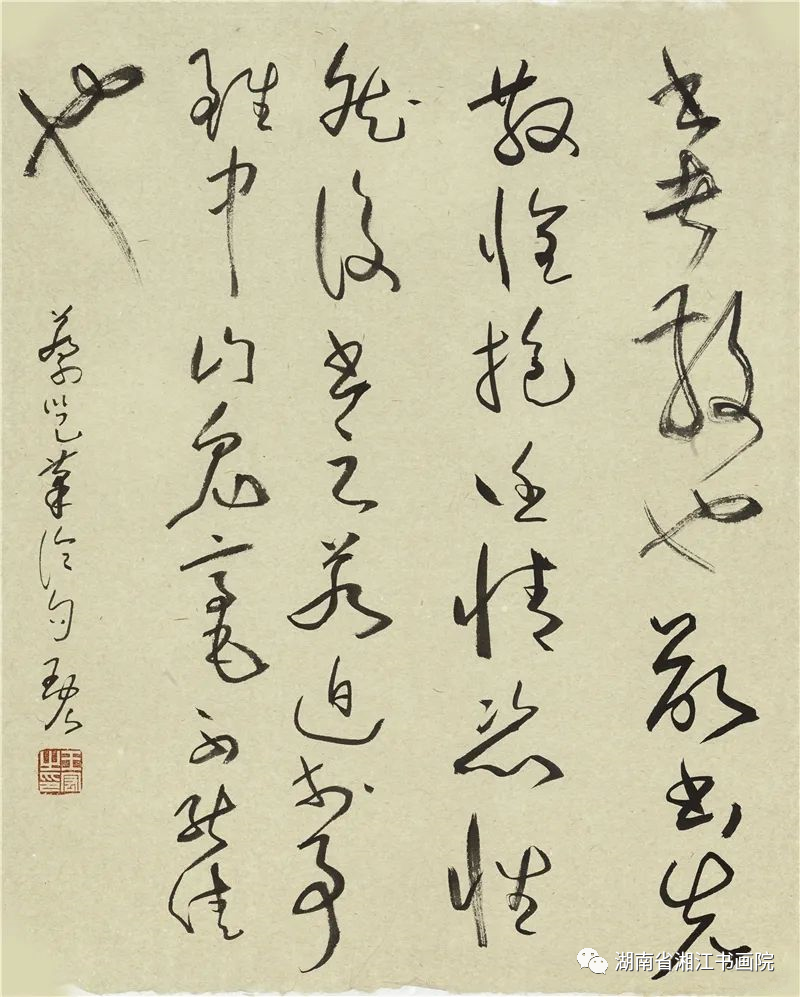 書者散也欲書先
散懷抱任情恣性
然後書之若迫於事
雖中山兔毫不能佳
也
蔡邕筆論句
湖南省湘江书画院